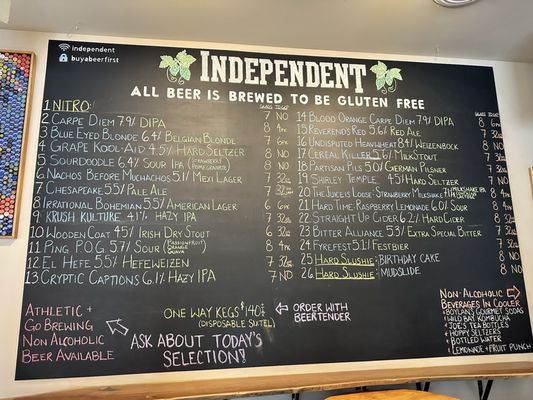 independent
buyabeerfirst
INDEPENDENT
ALL BEER IS BREWED TO BE GLUTEN FREE
GLASS TO GO?
1 NITRO:
2 CARPE DIEM 7.9% DIPA
3 BLUE EYED BLONDE 6.4% BELGIAN BLONDE
4 GRAPE KOOL-AID 4.5% HARD SELTZER
5 SOURDOODLE 6.4% SOUR IPA (STRAWBERRY POMEGRANATE)
6 NACHOS BEFORE MUCHACHOS 5.1% MEXI LAGER
7 CHESAPEAKE 5.5% PALE ALE
8 IRRATIONAL BOHEMIAN 5.5% AMERICAN LAGER
9 KRUSH KULTURE 4.1% HAZY IPA
10 WOODEN COAT 4.5% IRISH DRY STOUT
11 PING P.O.G. 5.7% SOUR (PASSIONFRUIT ORANGE GUAVA)
12 EL HEFE 5.5% HEFEWEIZEN
13 CRYPTIC CAPTIONS 6.1% HAZY IPA
14 BLOOD ORANGE CARPE DIEM 7.9% DIPA
15 REVEREND'S RED 5.6% RED ALE
16 UNDISPUTED HEAVYWHEAT 8.4% WEIZENBOCK
17 CEREAL KILLER 5.6% MILK STOUT
18 PARTISAN PILS 5.0% GERMAN PILSNER
19 SHIRLEY TEMPLE 4.5% HARD SELTZER
20 THE JUICE IS LOOSE: STRAWBERRY MILKSHAKE MILKSHAKE IPA
21 HARD TIME: RASPBERRY LEMONADE 6.0% SOUR
22 STRAIGHT UP CIDER 6.2% HARD CIDER
23 BITTER ALLIANCE 5.3% EXTRA SPECIAL BITTER
24 FYREFEST 5.1% FESTBIER
25 HARD SLUSHIE: BIRTHDAY CAKE
26 HARD SLUSHIE: MUDSLIDE
ATHLETIC +
GO BREWING
NON ALCOHOLIC
BEER AVAILABLE
ONE WAY KEGS $140
(DISPOSABLE SIXTEL)
ORDER WITH
BEERTENDER
ASK ABOUT TODAY'S
SELECTION!
NON-ALCOHOLIC
BEVERAGES IN COOLER
BOYLAN'S GOURMET SODAS
WILD BAY KOMBUCHA
JOE'S TEA BOTTLES
HOPPY SELTZERS
BOTTLED WATER
LEMONADE + FRUIT PUNCH